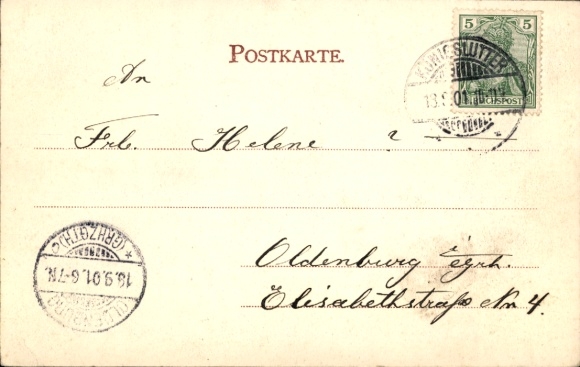 POSTKARTE.
5 5
REICHSPOST
KÖNIGSLUTTER
13.9.01
An
Frl. Helene ?
Oldenburg i/grh.
Elisabethstraße No 4.
OLDENBURG
(GRHZGTH.)
13.9.01.6-7N.